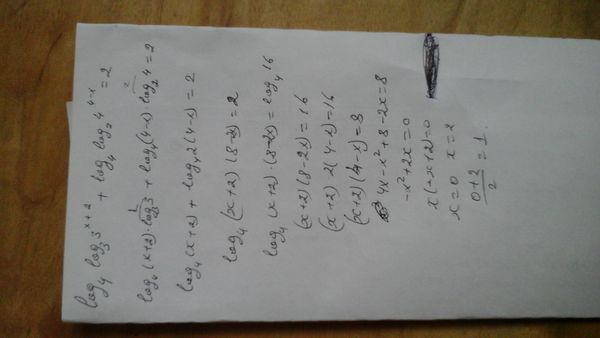 log₄ log₃ 3^(x+2) + log₄ log₂ 4^(4-x) = 2
log₄ (x+2)·log₃3 1 + log₄(4-x)·log₂4 2 = 2
log₄ (x+2) + log₄ 2(4-x) = 2
log₄ (x+2)(8-2x) = 2
log₄ (x+2)·(8-2x) = log₄ 16
(x+2)(8-2x) = 16
(x+2) 2(4-x) = 16
(x+2)(4-x) = 8
4x - x² + 8 - 2x = 8
-x² + 2x = 0
x(-x+2) = 0
x = 0 x = 2
(0+2)/2 = 1.